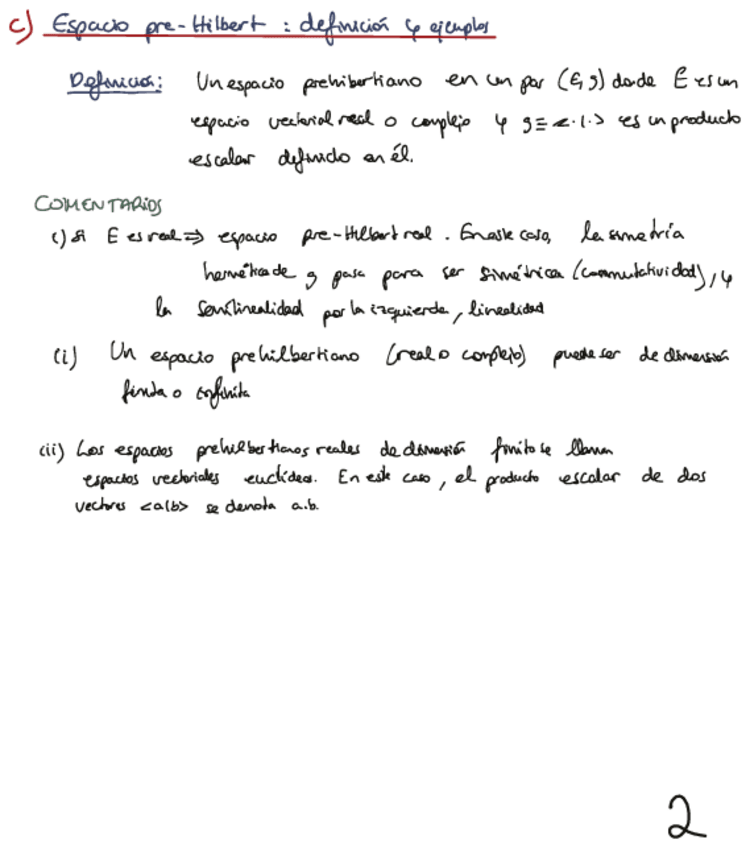 c) Espacio pre-Hilbert : definición y ejemplos
Definición: Un espacio prehilbertiano en un par (E, g) donde E es un
espacio vectorial real o complejo y g ≡ <·|·> es un producto
escalar definido en él.
COMENTARIOS
i) si E es real ⇒ espacio pre-Hilbert real. En este caso, la simetría
hermética de g pasa para ser simétrica (conmutatividad), y
la semilinealidad por la izquierda, linealidad
(i) Un espacio prehilbertiano (real o complejo) puede ser de dimensión
finita o infinita
(ii) Los espacios prehilbertianos reales de dimensión finito se llaman
espacios vectoriales euclídeos. En este caso, el producto escalar de dos
vectores <a|b> se denota a.b.
2